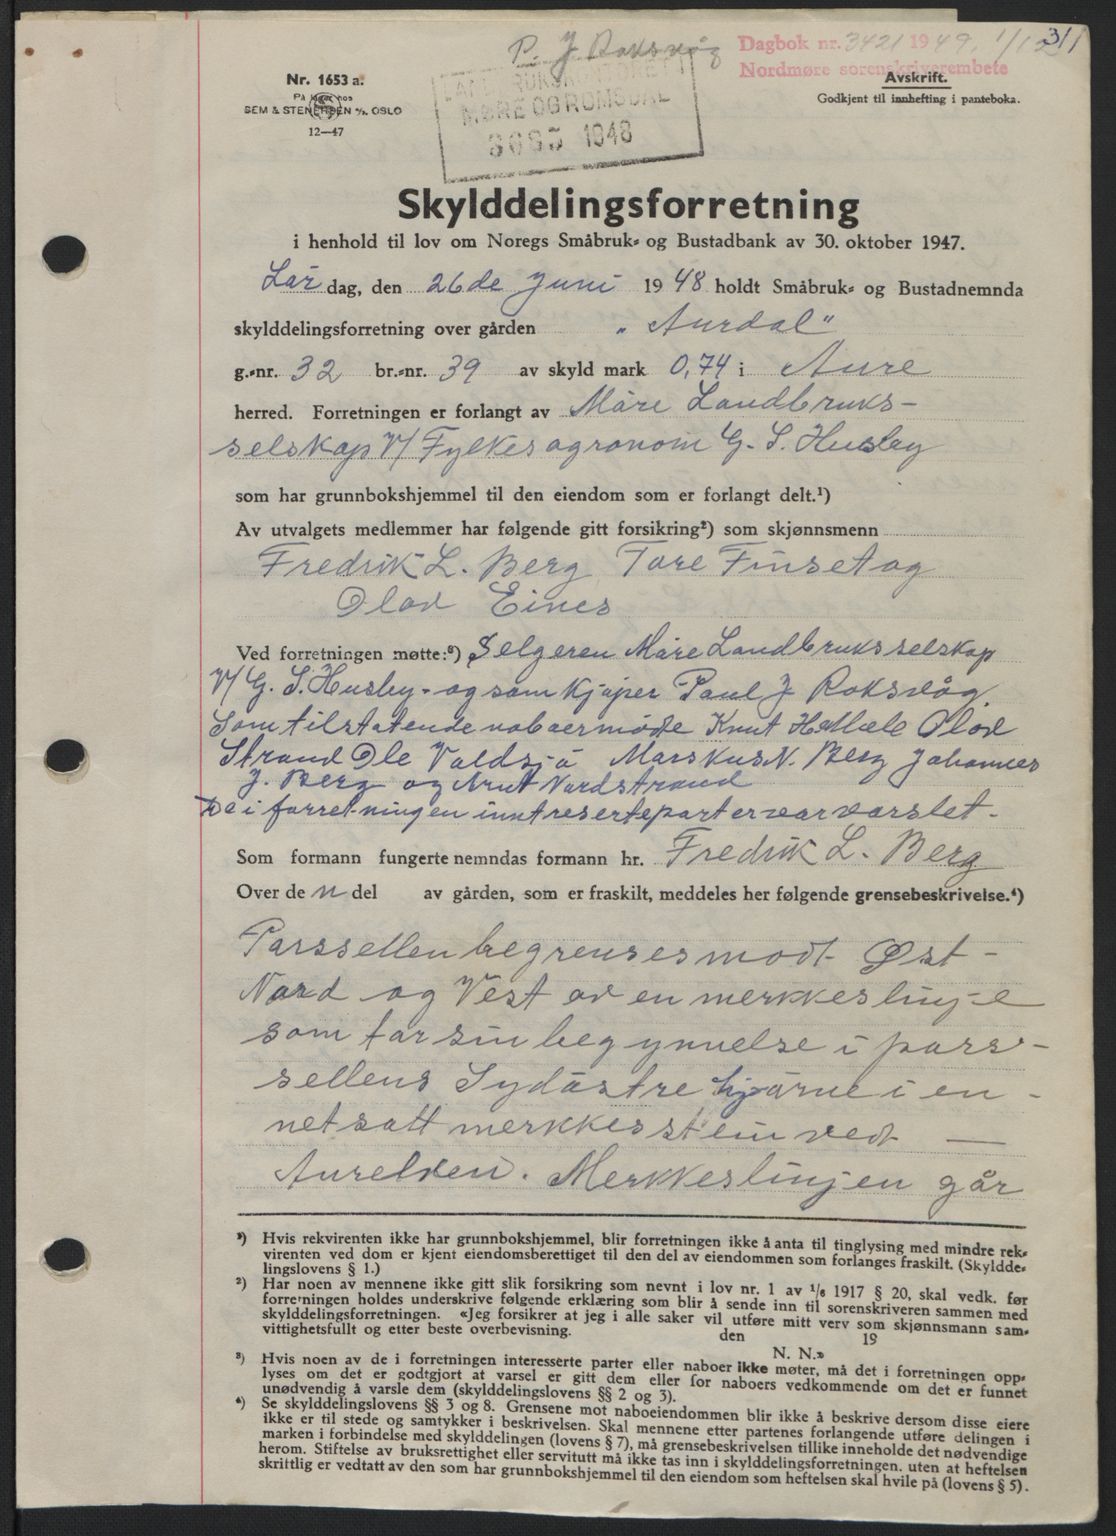 P. J. Roksvåg
Dagbok nr. 3421 1949. 1/12 311
Nordmøre sorenskriverembete
Nr. 1653 a.
På lager hos
SEM & STENERSEN A/S, OSLO
12—47
MØRE OG ROMSDAL
1948
Avskrift.
Godkjent til innhefting i panteboka.
Skylddelingsforretning
i henhold til lov om Noregs Småbruk- og Bustadbank av 30. oktober 1947.
Lør dag, den 26de Juni 19 48 holdt Småbruk- og Bustadnemnda
skylddelingsforretning over gården „Aurdal“
g.-nr. 32 br.-nr. 39 av skyld mark 0,74 i Aure
herred. Forretningen er forlangt av Møre Landbruks-
selskap V/ Fylkesagronom G. S. Husby
som har grunnbokshjemmel til den eiendom som er forlangt delt.¹)
Av utvalgets medlemmer har følgende gitt forsikring²) som skjønnsmenn
Fredrik L. Berg Tore Finset og
Olav Eines
Ved forretningen møtte:³) Selgeren Møre Landbruksselskap
V/ G. S. Husby - og som kjøper Paul J Roksvåg
Som tilstøtende naboer møtte Knut H Mæle Olav
Strand Ole Valdsjø Marskus N. Berg Johannes
J. Berg og Arnt Nordstrand
De i forretningen inntreserte parter var varslet -
Som formann fungerte nemndas formann hr. Fredrik L. Berg
Over de n del av gården, som er fraskilt, meddeles her følgende grensebeskrivelse.⁴)
Parssellen begrenses modt Øst -
Nord og Vest av en merkkeslinje
som tar sin begynnelse i pars-
sellens Sydøstre hjørne i en -
netsatt merkkesstein vedt —
Aurelven. Merkkeslinjen går
¹) Hvis rekvirenten ikke har grunnbokshjemmel, blir forretningen ikke å anta til tinglysing med mindre rek-
virenten ved dom er kjent eiendomsberettiget til den del av eiendommen som forlanges fraskilt. (Skyldde-
lingslovens § 1.)
²) Har noen av mennene ikke gitt slik forsikring som nevnt i lov nr. 1 av 1/6 1917 § 20, skal vedk. før
forretningen holdes underskrive følgende erklæring som blir å sende inn til sorenskriveren sammen med
skylddelingsforretningen. «Jeg forsikrer at jeg i alle saker vil utføre mitt verv som skjønnsmann sam-
vittighetsfullt og etter beste overbevisning. den 19
N. N.»
³) Hvis noen av de i forretningen interesserte parter eller naboer ikke møter, må det i forretningen opp-
lyses om det er godtgjort at varsel er gitt dem eller for naboers vedkommende om det er funnet
unødvendig å varsle dem (skylddelingslovens §§ 2 og 3).
⁴) Se skylddelingslovens §§ 3 og 8. Grensene mot naboeiendommen blir ikke å beskrive dersom disse eiere
ikke er til stede og samtykker i beskrivelsen. Skal mennene etter partenes forlangende utføre delingen i
marken i forbindelse med skylddelingen (lovens § 7), må grensebeskrivelsen tillike inneholde det nødvendige
herom. Stiftelse av bruksrettighet eller servitutt må ikke tas inn i skylddelingsforretningen. uten at heftelsen
skriftlig er vedtatt av den som har grunnbokshjemmel til den eiendom som heftelsen skal hvile på (lovens § 5).